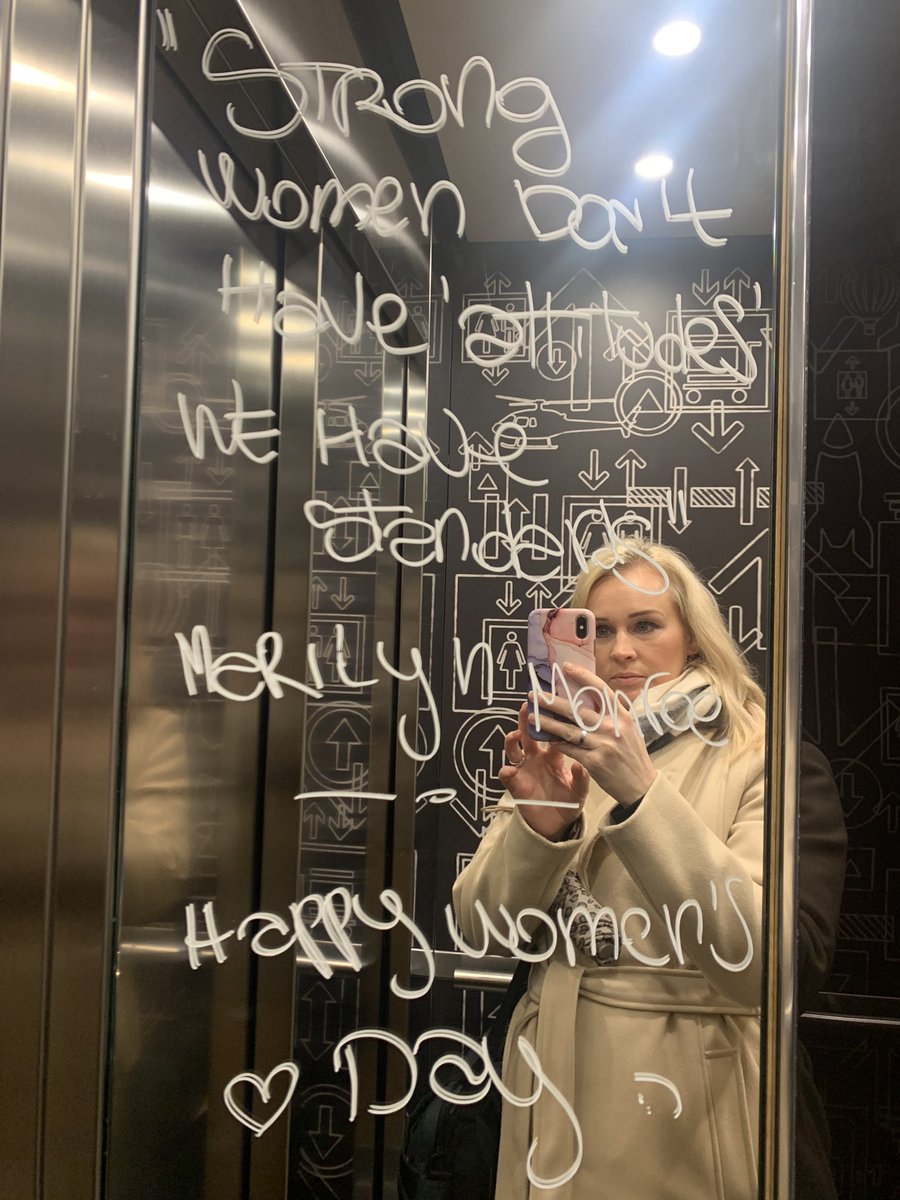 "Strong
women Don't
Have 'attitudes'
WE Have
standards"
Marilyn Monroe
Happy women's
♡ Day :)